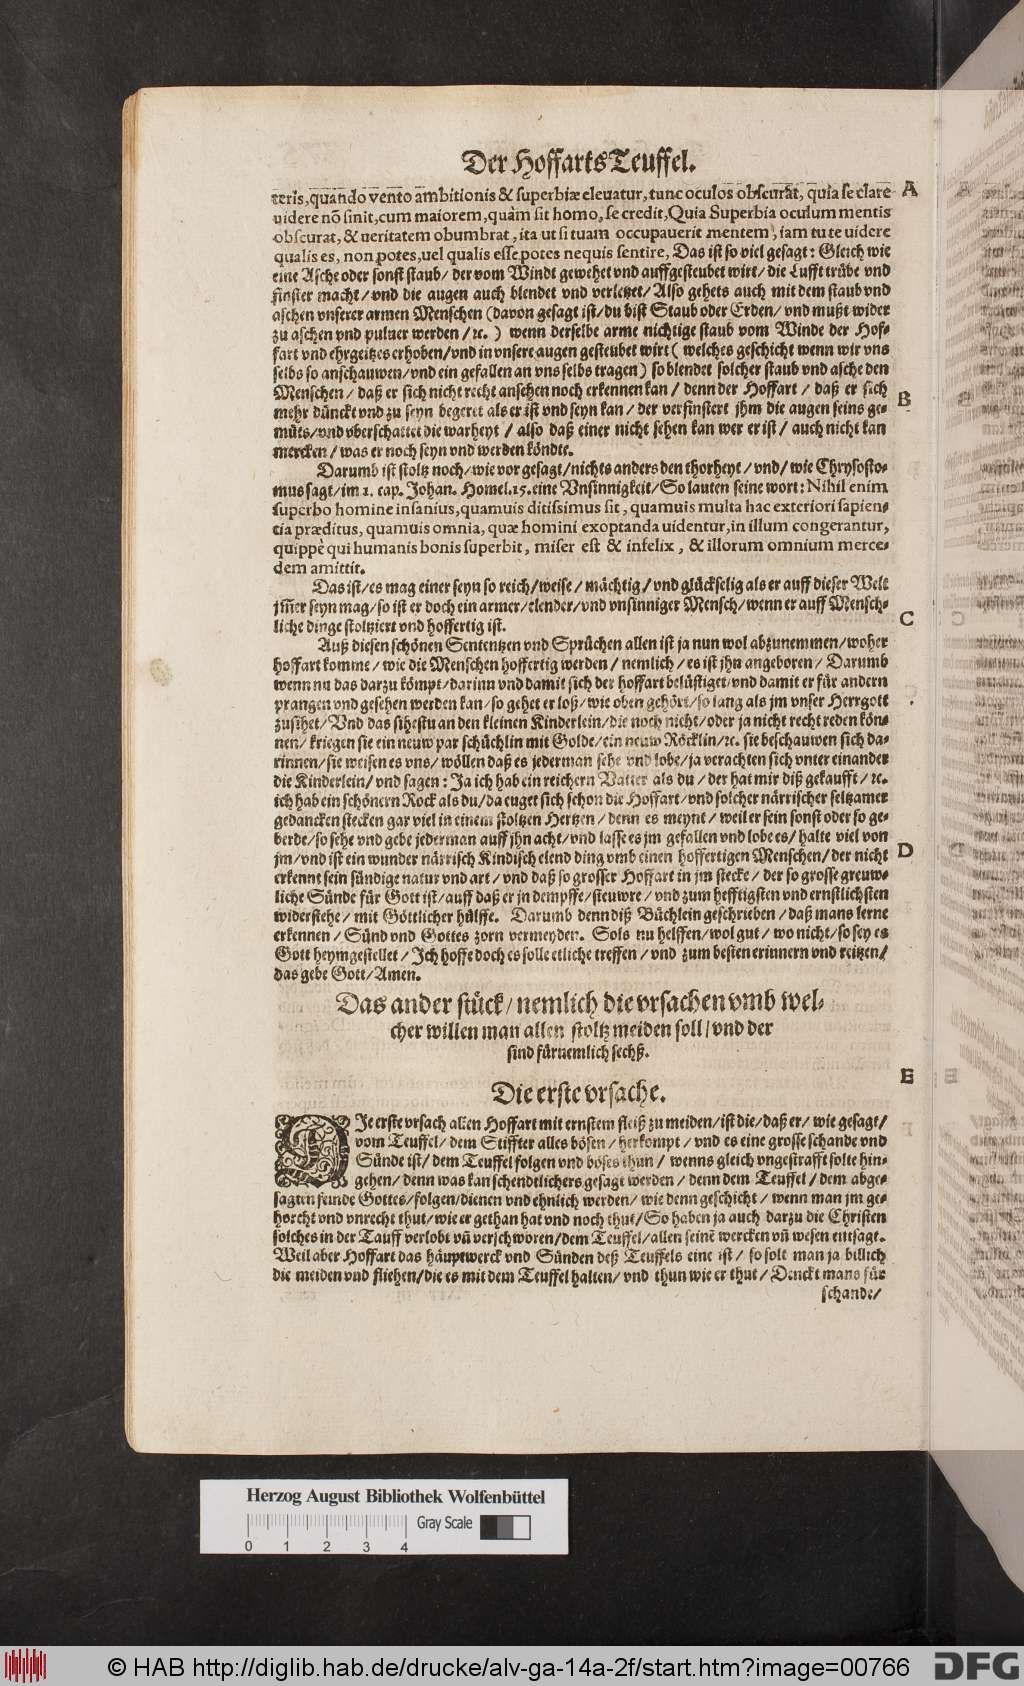 Der HoffartsTeuffel.
teris, quando vento ambitionis & superbiæ eleuatur, tunc oculos obscurat, quia se clare
uidere nõ sinit, cum maiorem, quàm sit homo, se credit, Quia Superbia oculum mentis
obscurat, & ueritatem obumbrat, ita ut si tuam occupauerit mentem, iam tu te uidere
qualis es, non potes, uel qualis esse potes nequis sentire, Das ist so viel gesagt: Gleich wie
eine Asche oder sonst staub / der vom Windt gewehet vnd auffgesteubet wirt / die Lufft trübe vnd
finster macht / vnd die augen auch blendet vnd verletzet / Also gehets auch mit dem staub vnd
aschen vnserer armen Menschen (dauon gesagt ist / du bist Staub oder Erden / vnd mußt wider
zu aschen vnd puluer werden / ꝛc. ) wenn derselbe arme nichtige staub vom Winde der Hof-
fart vnd ehrgeitzes erhoben / vnd in vnsere augen gesteubet wirt ( welches geschicht wenn wir vns
selbs so anschauwen / vnd ein gefallen an vns selbs tragen) so blendet solcher staub vnd asche den
Menschen / daß er sich nicht recht ansehen noch erkennen kan / denn der Hoffart / daß er sich
mehr dünckt vnd zu seyn begeret als er ist vnd seyn kan / der verfinstert jhm die augen seins ge-
müts / vnd vberschattet die warheyt / also daß einer nicht sehen kan wer er ist / auch nicht kan
mercken / was er noch seyn vnd werden köndte.
Darumb ist stoltz noch / wie vor gesagt / nichts anders den thorheyt / vnd / wie Chrysosto-
mus sagt / im 1. cap. Johan. Homel. 15. eine Vnsinnigkeit / So lauten seine wort: Nihil enim
superbo homine insanius, quamuis ditissimus sit, quamuis multa hac exteriori sapien-
tia præditus, quamuis omnia, quæ homini exoptanda uidentur, in illum congerantur,
quippè qui humanis bonis superbit, miser est & infelix, & illorum omnium merce-
dem amittit.
Das ist / es mag einer seyn so reich / weise / mächtig / vnd glückselig als er auff dieser Welt
jm̃er seyn mag / so ist er doch ein armer / elender / vnd vnsinniger Mensch / wenn er auff Mensch-
liche dinge stoltziert vnd hoffertig ist.
Auß diesen schönen Sententzen vnd Sprüchen allen ist ja nun wol abzunemmen / woher
hoffart komme / wie die Menschen hoffertig werden / nemlich / es ist jhn angeboren / Darumb
wenn nu das darzu kömpt / darinn vnd damit sich der hoffart belüstiget / vnd damit er für andern
prangen vnd gesehen werden kan / so gehet er loß / wie oben gehört / so lang als jm vnser Herrgott
zusihet / Vnd das sihestu an den kleinen Kinderlein / die noch nicht / oder ja nicht recht reden kön-
nen / kriegen sie ein neuw par schüchlin mit Golde / ein neuw Röcklin / ꝛc. sie beschauwen sich da-
rinnen / sie weisen es vns / wöllen daß es jederman sehe vnd lobe / ja verachten sich vnter einander
die Kinderlein / vnd sagen: Ja ich hab ein reichern Vatter als du / der hat mir diß gekaufft / ꝛc.
ich hab ein schönern Rock als du / da euget sich schon die Hoffart / vnd solcher närrischer seltzamer
gedancken stecken gar viel in einem stoltzen Hertzen / denn es meynt / weil er fein sonst oder so ge-
berde / so sehe vnd gebe jederman auff jhn acht / vnd lasse es jm gefallen vnd lobe es / halte viel von
jm / vnd ist ein wunder närrisch Kindisch elend ding vmb einen hoffertigen Menschen / der nicht
erkennt sein sündige natur vnd art / vnd daß so grosser Hoffart in jm stecke / der so grosse greuw-
liche Sünde für Gott ist / auff daß er jn dempffe / steuwre / vnd zum hefftigsten vnd ernstlichsten
widerstehe / mit Göttlicher hülffe. Darumb denn diß Büchlein geschrieben / daß mans lerne
erkennen / Sünd vnd Gottes zorn vermeyden. Sols nu helffen / wol gut / wo nicht / so sey es
Gott heymgestellet / Ich hoffe doch es solle etliche treffen / vnd zum besten erinnern vnd reitzen /
das gebe Gott / Amen.
Das ander stück / nemlich die vrsachen vmb wel-
cher willen man allen stoltz meiden soll / vnd der
sind fürnemlich sechß.
Die erste vrsache.
DIe erste vrsach allen Hoffart mit ernstem fleiß zu meiden / ist die / daß er / wie gesagt /
vom Teuffel / dem Stiffter alles bösen / herkompt / vnd es eine grosse schande vnd
Sünde ist / dem Teuffel folgen vnd böses thun / wenns gleich vngestrafft solte hin-
gehen / denn was kan schendtlichers gesagt werden / denn dem Teuffel / dem abge-
sagten feinde Gottes / folgen / dienen vnd ehnlich werden / wie denn geschicht / wenn man jm ge-
horcht vnd vnrecht thut / wie er gethan hat vnd noch thut / So haben ja auch darzu die Christen
solches in der Tauff verlobt vñ verschworen / dem Teuffel / allen seinē wercken vñ wesen entsagt.
Weil aber Hoffart das häuptwerck vnd Sünden deß Teuffels eine ist / so solt man ja billich
die meiden vnd fliehen / die es mit dem Teuffel halten / vnd thun wie er thut / Denckt mans für
schande /
A
B
C
D
E
Herzog August Bibliothek Wolfenbüttel
Gray Scale
0 1 2 3 4
© HAB http://diglib.hab.de/drucke/alv-ga-14a-2f/start.htm?image=00766
DFG